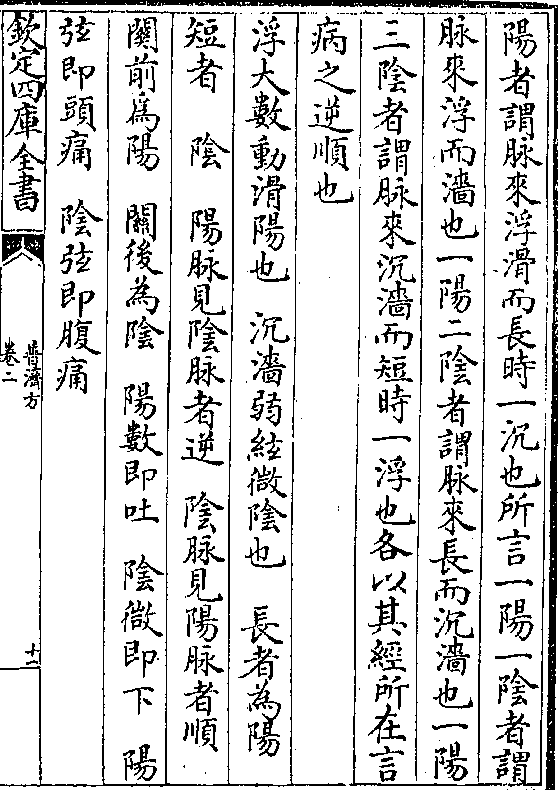 陽者謂脉來浮滑而長時一沉也所言一陽一陰者謂
脉來浮而濇也一陽二陰者謂脉來長而沉濇也一陽
三陰者謂脉來沉濇而短時一浮也各以其經所在言
病之逆順也
浮大數動滑陽也　沉濇弱弦微陰也　長者為陽
短者　陰　陽脉見陰脉者逆　陰脉見陽脉者順
關前為陽　關後為陰　陽數即吐　陰微即下　陽
弦即頭痛　陰弦即腹痛
欽定四庫全書
普濟方
卷二
十二